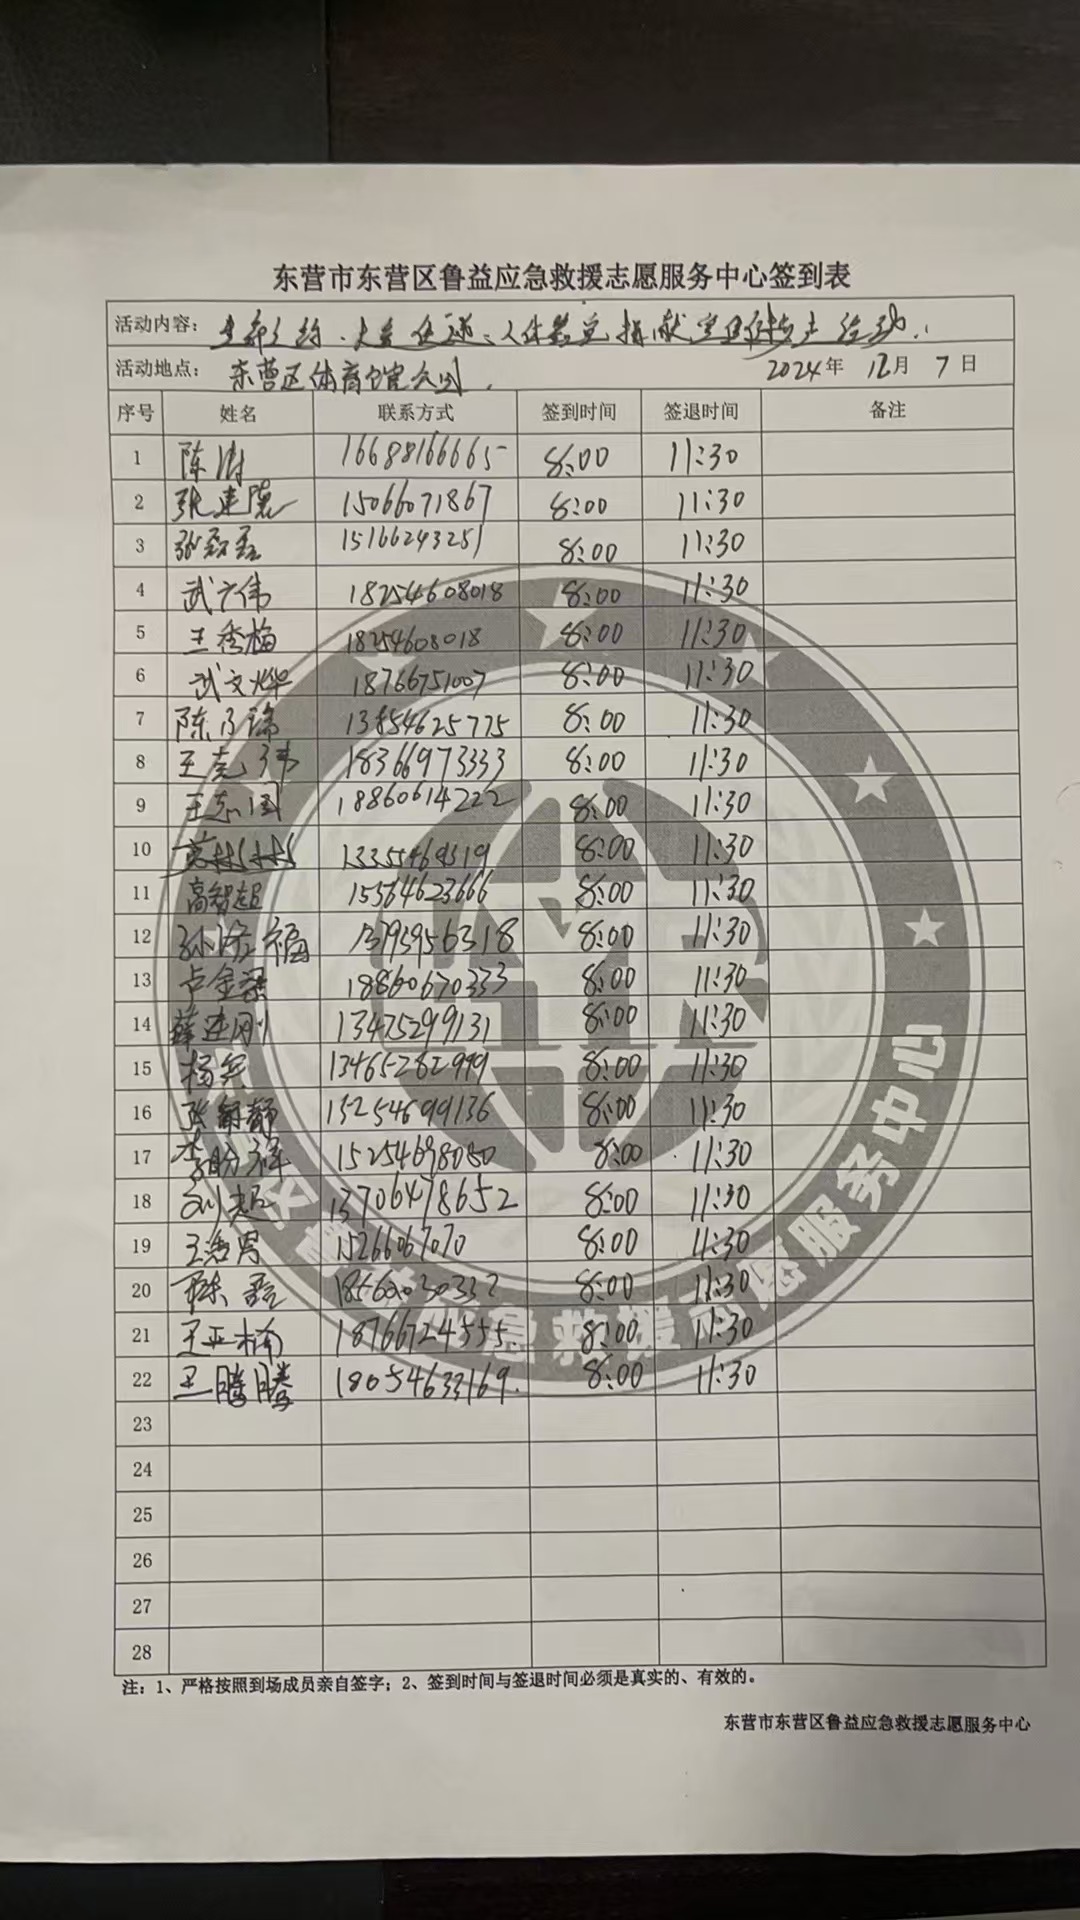 东营市东营区鲁益应急救援志愿服务中心签到表
活动内容：生命之约、大爱传递、人体器官捐献宣传活动.
活动地点：东营区体育馆公园. 2024年 12月 7日
序号 姓名 联系方式 签到时间 签退时间 备注
1 陈 16688166665 8:00 11:30
2 张建 15066071867 8:00 11:30
3 张磊磊 15166243251 8:00 11:30
4 武广伟 18254608018 8:00 11:30
5 王秀梅 18254608018 8:00 11:30
6 武文烨 18766751007 8:00 11:30
7 陈乃瑞 13854625775 8:00 11:30
8 王亮 18366973333 8:00 11:30
9 王志国 18860614222 8:00 11:30
10 8:00 11:30
11 高智超 15564623666 8:00 11:30
12 孙 福 13793956318 8:00 11:30
13 卢金梁 18860670333 8:00 11:30
14 薛建刚 13475299131 8:00 11:30
15 杨兵 13465282999 8:00 11:30
16 张 静 15254699136 8:00 11:30
17 李 祥 15254698080 8:00 11:30
18 刘超 13706478652 8:00 11:30
19 王浩男 15266067070 8:00 11:30
20 陈磊 8:00 11:30
21 王亚楠 18766724555 8:00 11:30
22 王腾腾 18054633169. 8:00 11:30
23
24
25
26
27
28
注：1、严格按照到场成员亲自签字；2、签到时间与签退时间必须是真实的、有效的。
东营市东营区鲁益应急救援志愿服务中心